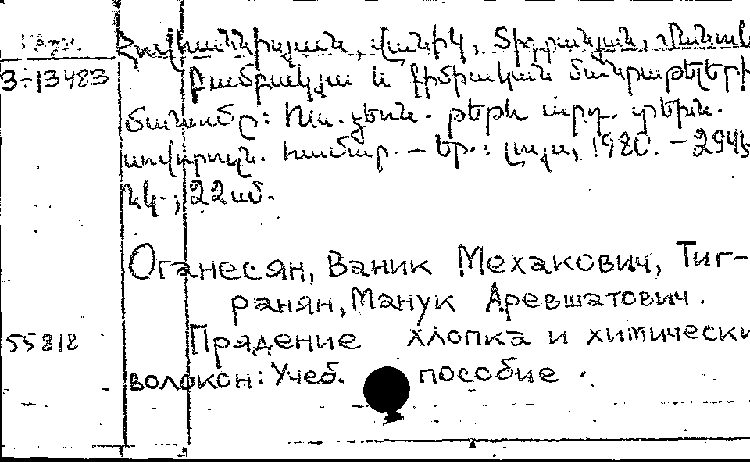 Հովհաննիսյան, Վանիկ, Տիգրանյան, Մանուկ
3-13483 Բամբակյա և քիմիական մանրաթելերի
մանումը: Ուս. ձեռն. թեթև արդ. տեխն.
սովորողն. համար. – Եր.: Լույս, 1980. – 294 էջ
նկ.; 22սմ.
Оганесян, Ваник Мехакович, Тиг-
ранян, Манук Аревшатович.
55818 Прядение хлопка и химически
волокон: Учеб. пособие.